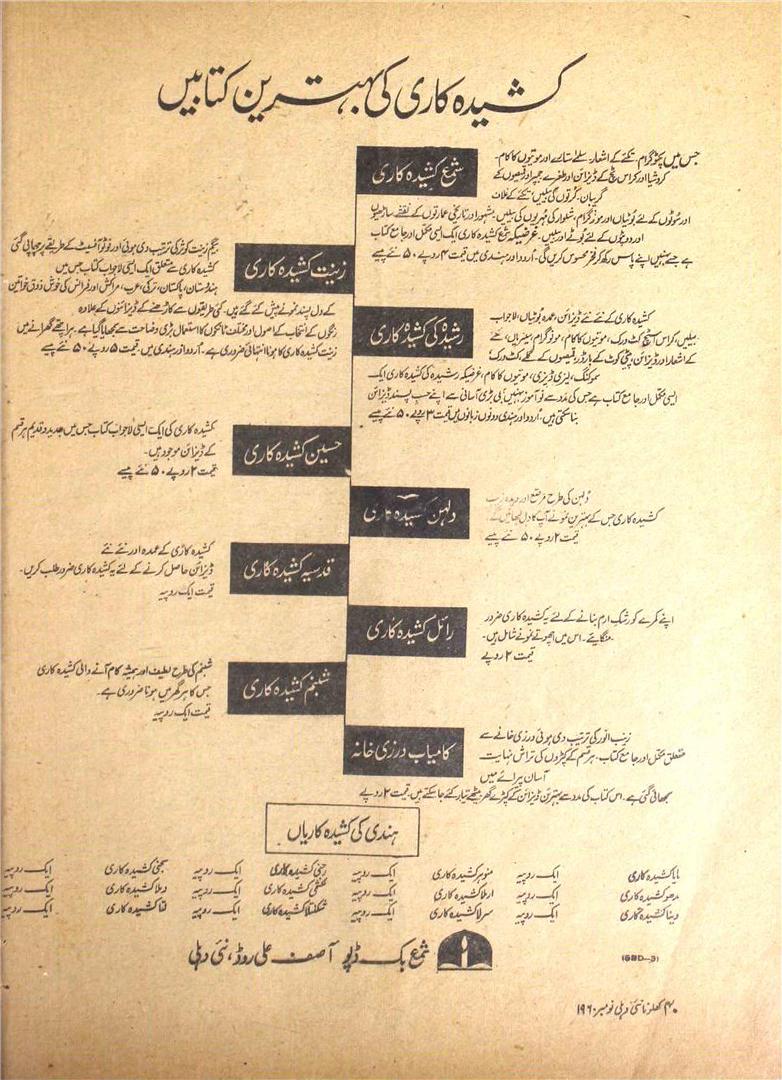 کشیدہ کاری کی بہترین کتابیں
شمع کشیدہ کاری
جس میں پکٹوگرام، تکئے کے اشعار، سلمے ستارے اور موتیوں کا کام۔
کروشیا اور کراس سٹچ کے ڈیزائن اور طغرے جمپر اور قمیصوں کے
گریبان، کرتوں کی بیلیں، تکئے کے غلاف
اور موٹوں کے لئے بوٹیاں اور مونوگرام، شلوار کی مہریوں کی بیلیں، مشہور اور تاریخی عمارتوں کے نقشے، ساڑھیوں
اور دوپٹوں کے لئے بوٹے اور بیلیں۔ غرضیکہ شمع کشیدہ کاری ایک ایسی مکمل اور جامع کتاب
ہے جسے بہنیں اپنے پاس رکھ کر فخر محسوس کریں گی۔ اُردو اور ہندی میں قیمت ۴ روپے ۵۰ نئے پیسے
زینت کشیدہ کاری
بیگم زینت کوثر کی ترتیب دی ہوئی اور فوٹو آفسیٹ کے طریقے پر چھاپی گئی
کشیدہ کاری سے متعلق ایک ایسی لاجواب کتاب جس میں
ہندوستان، پاکستان، ترکی، عرب، مراکش اور فرانس کی خوش ذوق خواتین
کے دل پسند نمونے پیش کئے گئے ہیں۔ کئی طریقوں سے کاڑھنے کے ڈیزائنوں کے علاوہ
رنگوں کے انتخاب کے اصول اور مختلف ٹانکوں کا استعمال بڑی وضاحت سے سمجھایا گیا ہے۔ ہر اچھے گھرانے میں
زینت کشیدہ کاری کا ہونا انتہائی ضروری ہے۔ اُردو اور ہندی میں۔ قیمت ۵ روپے ۵۰ نئے پیسے
رشیدہ کی کشیدہ کاری
کشیدہ کاری کے نئے نئے ڈیزائن، عمدہ بوٹیاں، لاجواب
بیلیں، کراس اسٹچ، کٹ ورک، موتیوں کا کام، مونوگرام، سینریاں، تکئے
کے اشعار اور ڈیزائن، پیٹی کوٹ کے بارڈر، قمیصوں کے گلے، کٹ ورک
سموکنگ، لیزی ڈیزی، موتیوں کا کام، غرضیکہ رشیدہ کی کشیدہ کاری ایک
ایسی مکمل اور جامع کتاب ہے جس کی مدد سے نو آموز بہنیں بھی بڑی آسانی سے اپنے حسب پسند ڈیزائن
بنا سکتی ہیں۔ اُردو اور ہندی دونوں زبانوں میں قیمت ۳ روپے ۵۰ نئے پیسے
حسین کشیدہ کاری
کشیدہ کاری کی ایک ایسی لاجواب کتاب جس میں جدید و قدیم ہر قسم
کے ڈیزائن موجود ہیں۔
قیمت ۲ روپے ۵۰ نئے پیسے
دلہن کشیدہ کاری
دُلہن کی طرح مرصّع اور دیدہ زیب
کشیدہ کاری جس کے بہترین نمونے آپ کا دل لبھائیں گے۔
قیمت ۲ روپے ۵۰ نئے پیسے
قدسیہ کشیدہ کاری
کشیدہ کاری کے عمدہ اور نئے نئے
ڈیزائن حاصل کرنے کے لئے یہ کشیدہ کاری ضرور طلب کریں۔
قیمت ایک روپیہ
رائل کشیدہ کاری
اپنے کمرے کو رشک ارم بنانے کے لئے یہ کشیدہ کاری ضرور
منگایئے۔ اس میں اچھوتے نمونے شامل ہیں۔
قیمت ۲ روپے
شبنم کشیدہ کاری
شبنم کی طرح لطیف اور ہمیشہ کام آنے والی کشیدہ کاری
جس کا ہر گھر میں ہونا ضروری ہے۔
قیمت ایک روپیہ
کامیاب درزی خانہ
زینب انور کی ترتیب دی ہوئی درزی خانے سے
متعلق مکمل اور جامع کتاب۔ ہر قسم کے کپڑوں کی تراش نہایت
آسان پیرائے میں
سمجھائی گئی ہے۔ اس کتاب کی مدد سے بہترین ڈیزائن کے کپڑے گھر بیٹھے تیار کئے جاسکتے ہیں۔ قیمت ۲ روپے
ہندی کی کشیدہ کاریاں
مایا کشیدہ کاری ایک روپیہ منوہر کشیدہ کاری ایک روپیہ رجنی کشیدہ کاری ایک روپیہ سجنی کشیدہ کاری ایک روپیہ
مدھو کشیدہ کاری ایک روپیہ ارملا کشیدہ کاری ایک روپیہ لکشمی کشیدہ کاری ایک روپیہ وملا کشیدہ کاری ایک روپیہ
وینا کشیدہ کاری ایک روپیہ سرلا کشیدہ کاری ایک روپیہ شکنتلا کشیدہ کاری ایک روپیہ لتا کشیدہ کاری ایک روپیہ
شمع بک ڈپو آصف علی روڈ، نئی دہلی
(GBD—3)
۴۰ کھلونا نئی دہلی نومبر ۱۹۶۰